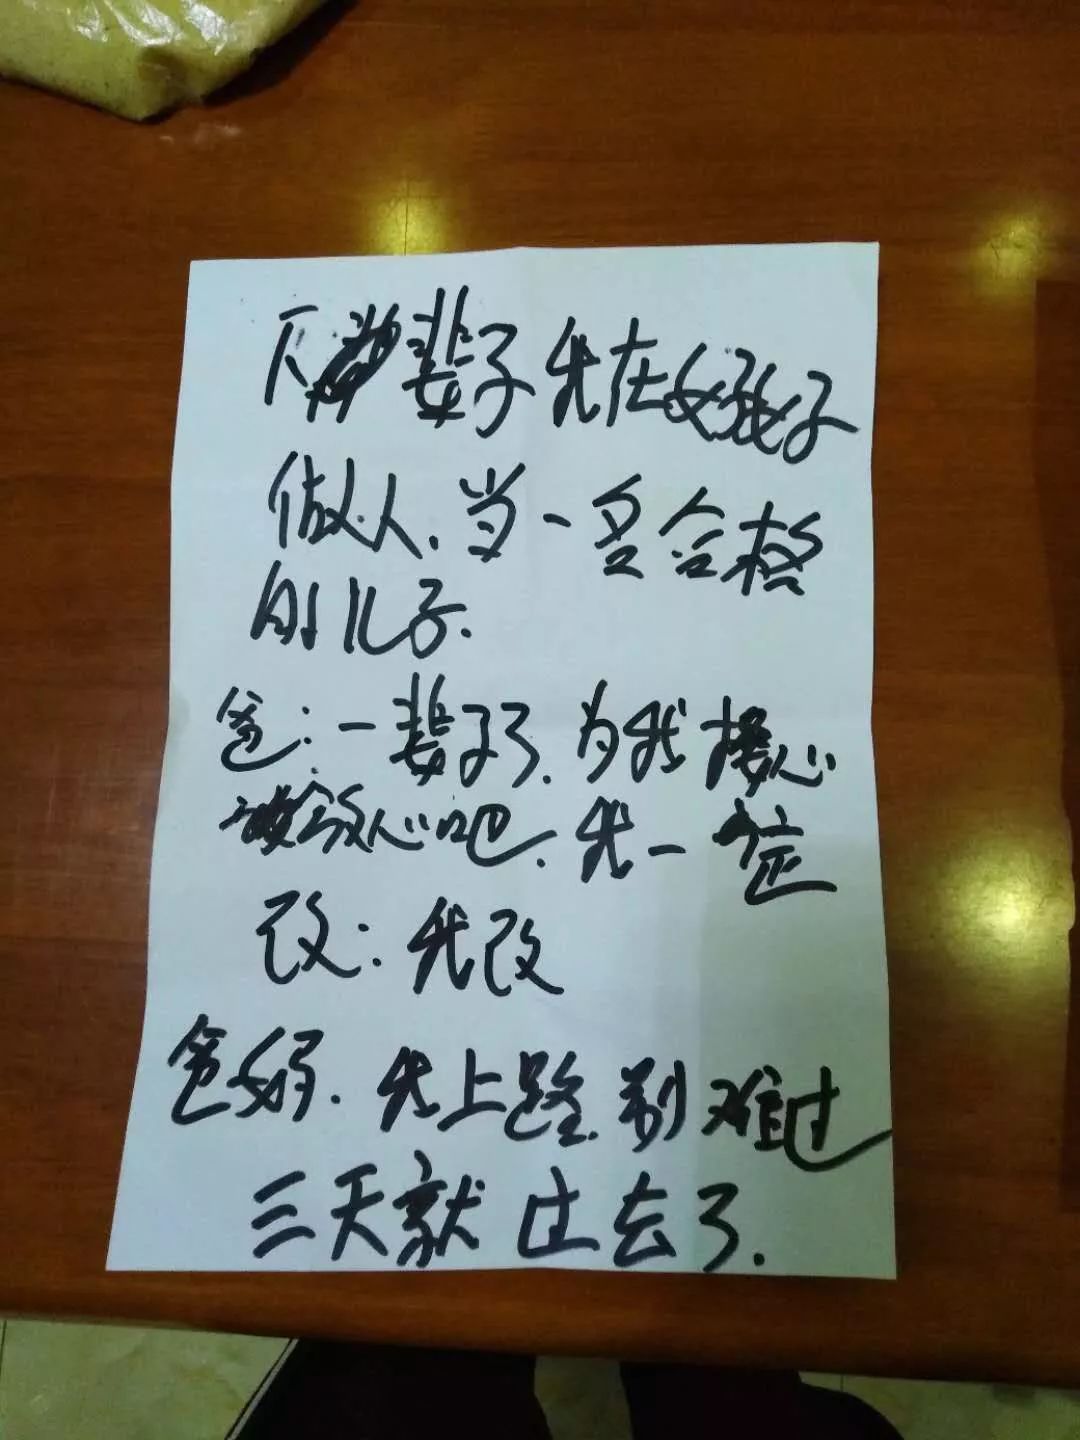 下辈子我在好好子
做人.当一名合格
的儿子.
爸:一辈子了.为我操心
放心吧.我一定
改:我改
爸妈.我上路.别难过
三天就过去了.